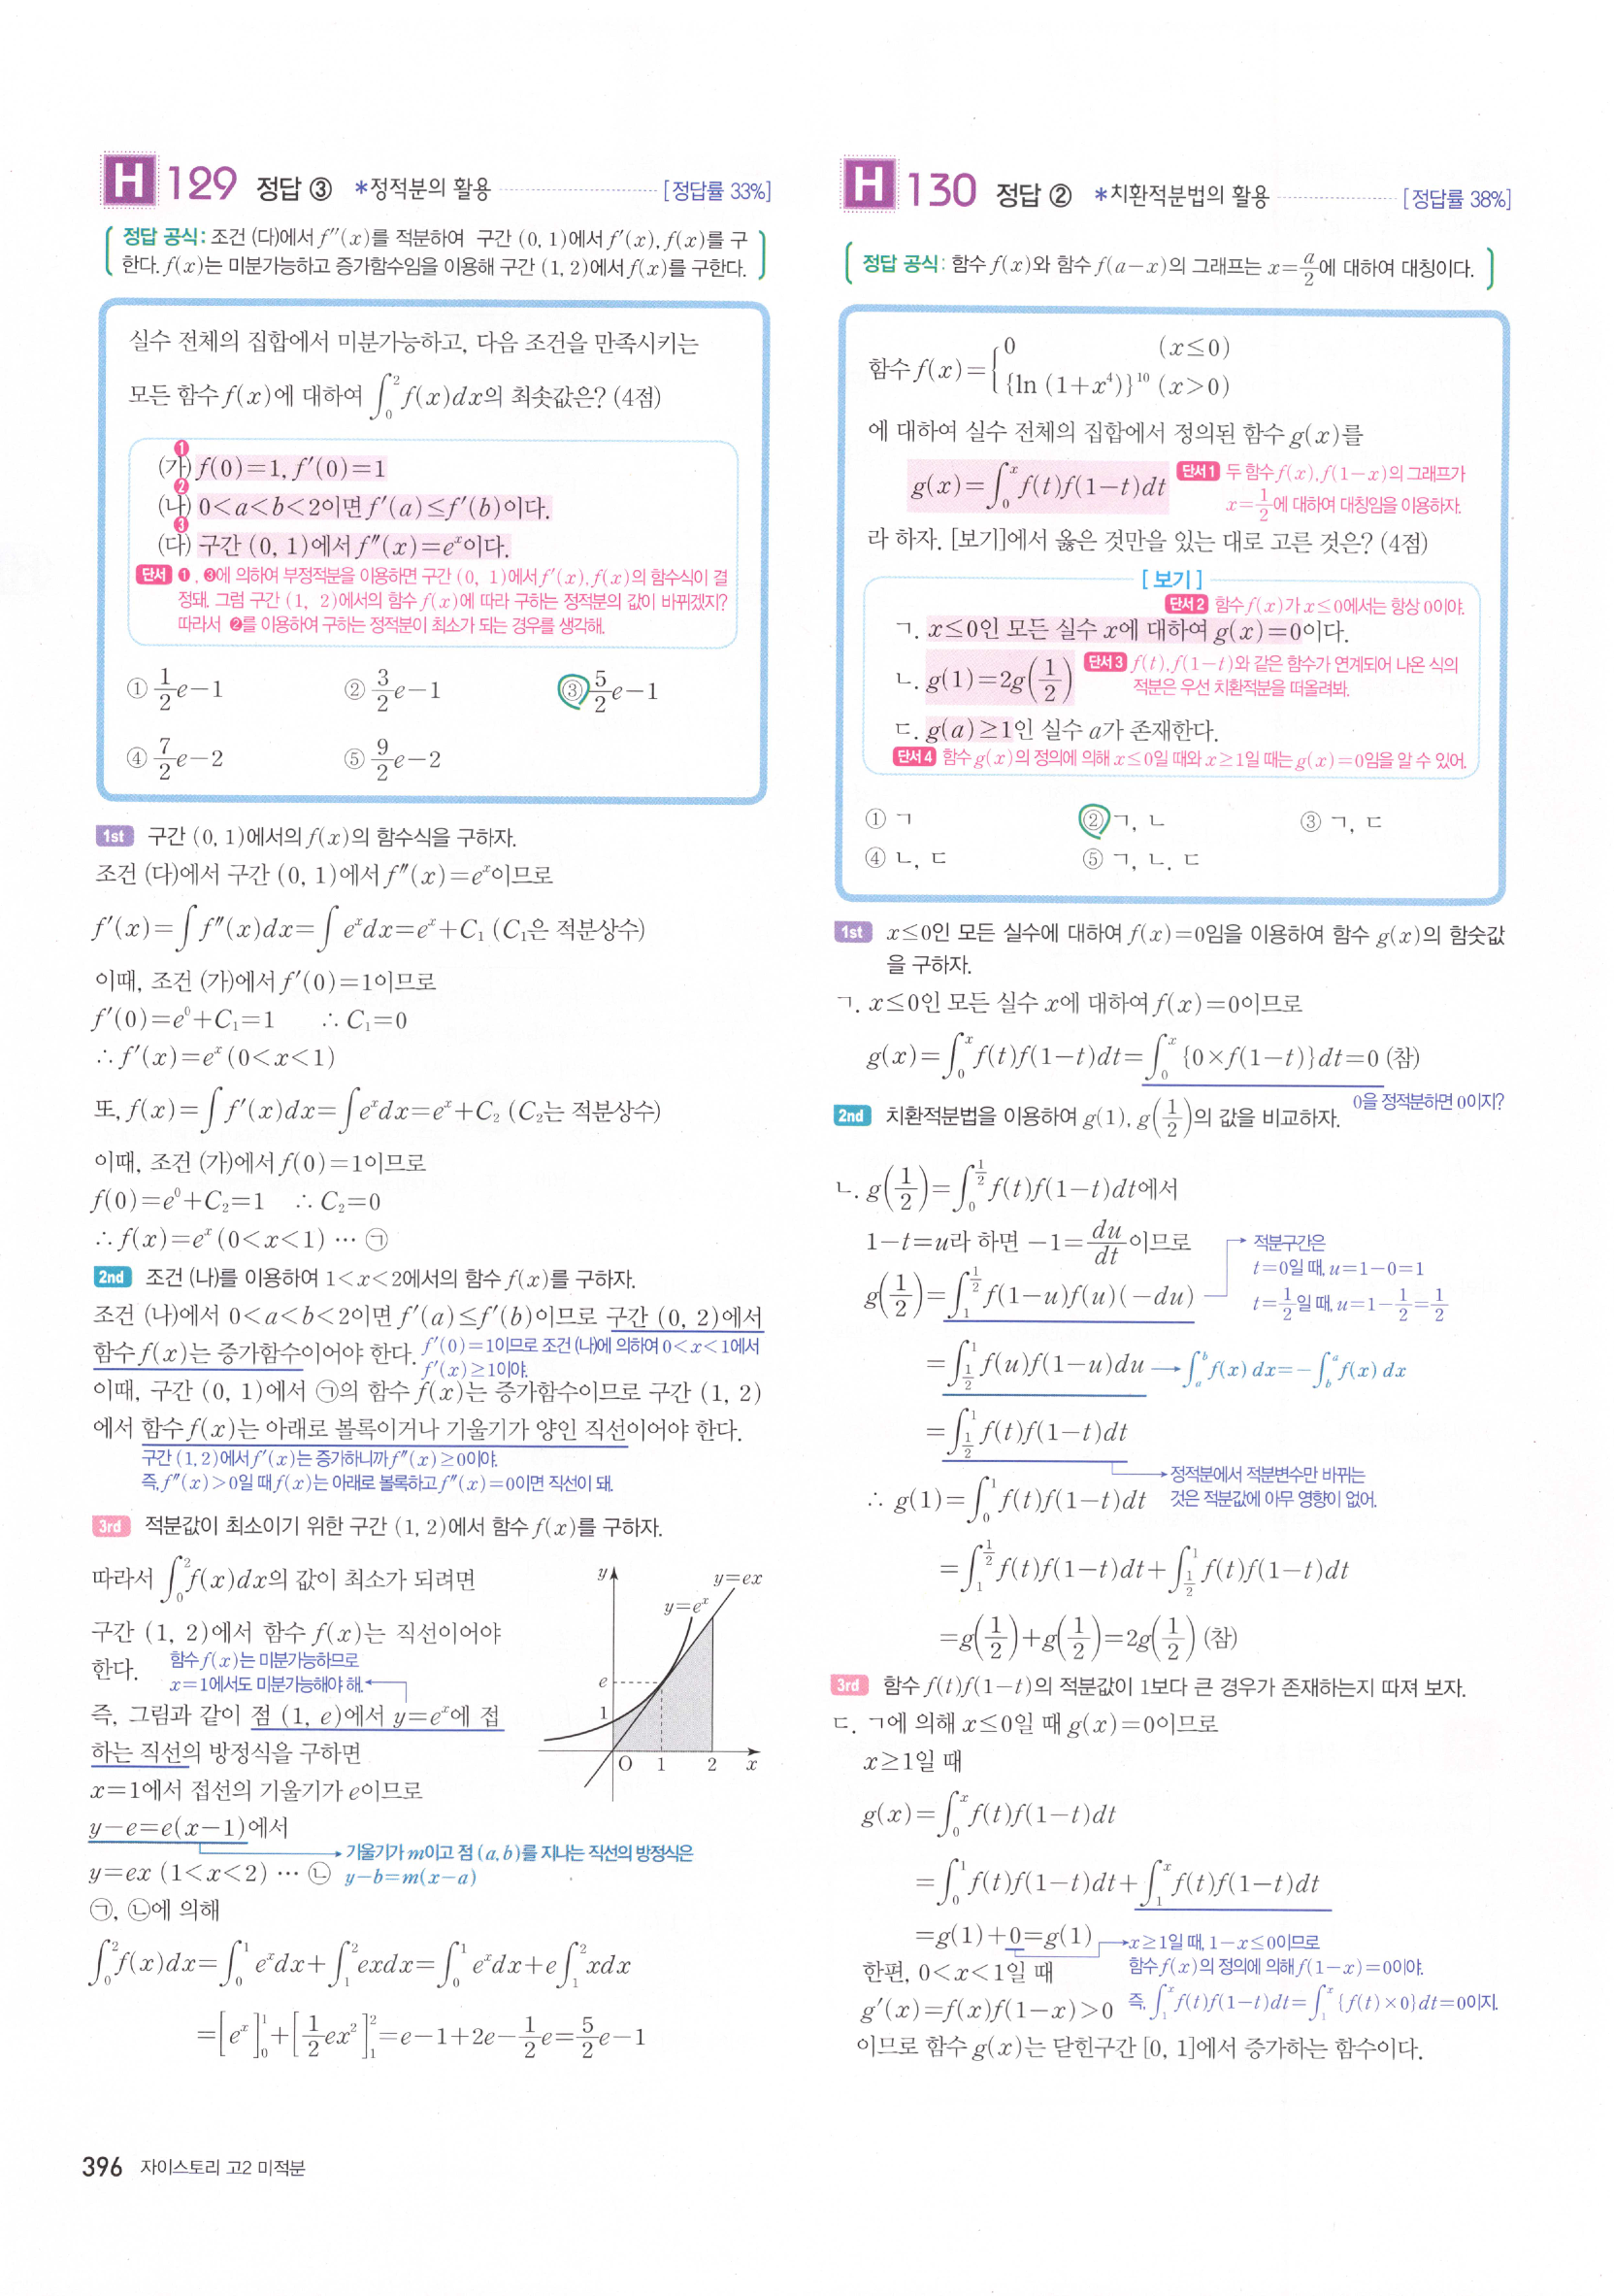 H 129 정답 ③ *정적분의 활용 [정답률 33%]
정답 공식: 조건 (다)에서 f″(x)를 적분하여 구간 (0, 1)에서 f′(x), f(x)를 구
한다. f(x)는 미분가능하고 증가함수임을 이용해 구간 (1, 2)에서 f(x)를 구한다.
실수 전체의 집합에서 미분가능하고, 다음 조건을 만족시키는
모든 함수 f(x)에 대하여 ∫₀² f(x)dx의 최솟값은? (4점)
❶
(가) f(0)=1, f′(0)=1
❷
(나) 0<a<b<2이면 f′(a)≤f′(b)이다.
❸
(다) 구간 (0, 1)에서 f″(x)=eˣ이다.
단서 ❶, ❸에 의하여 부정적분을 이용하면 구간 (0, 1)에서 f′(x), f(x)의 함수식이 결
정돼. 그럼 구간 (1, 2)에서의 함수 f(x)에 따라 구하는 정적분의 값이 바뀌겠지?
따라서 ❷를 이용하여 구하는 정적분이 최소가 되는 경우를 생각해.
① 1/2 e−1 ② 3/2 e−1 ③ 5/2 e−1
④ 7/2 e−2 ⑤ 9/2 e−2
1st 구간 (0, 1)에서의 f(x)의 함수식을 구하자.
조건 (다)에서 구간 (0, 1)에서 f″(x)=eˣ이므로
f′(x)=∫f″(x)dx=∫eˣdx=eˣ+C₁ (C₁은 적분상수)
이때, 조건 (가)에서 f′(0)=1이므로
f′(0)=e⁰+C₁=1 ∴ C₁=0
∴ f′(x)=eˣ (0<x<1)
또, f(x)=∫f′(x)dx=∫eˣdx=eˣ+C₂ (C₂는 적분상수)
이때, 조건 (가)에서 f(0)=1이므로
f(0)=e⁰+C₂=1 ∴ C₂=0
∴ f(x)=eˣ (0<x<1) … ㉠
2nd 조건 (나)를 이용하여 1<x<2에서의 함수 f(x)를 구하자.
조건 (나)에서 0<a<b<2이면 f′(a)≤f′(b)이므로 구간 (0, 2)에서
함수 f(x)는 증가함수이어야 한다. f′(0)=1이므로 조건 (나)에 의하여 0<x<1에서
f′(x)≥1이야.
이때, 구간 (0, 1)에서 ㉠의 함수 f(x)는 증가함수이므로 구간 (1, 2)
에서 함수 f(x)는 아래로 볼록이거나 기울기가 양인 직선이어야 한다.
구간 (1, 2)에서 f′(x)는 증가하니까 f″(x)≥0이야.
즉, f″(x)>0일 때 f(x)는 아래로 볼록하고 f″(x)=0이면 직선이 돼.
3rd 적분값이 최소이기 위한 구간 (1, 2)에서 함수 f(x)를 구하자.
따라서 ∫₀² f(x)dx의 값이 최소가 되려면
구간 (1, 2)에서 함수 f(x)는 직선이어야
한다. 함수 f(x)는 미분가능하므로
x=1에서도 미분가능해야 해.
즉, 그림과 같이 점 (1, e)에서 y=eˣ에 접
하는 직선의 방정식을 구하면
x=1에서 접선의 기울기가 e이므로
y y=ex
y=eˣ
e
1
O 1 2 x
y−e=e(x−1)에서
기울기가 m이고 점 (a, b)를 지나는 직선의 방정식은
y=ex (1<x<2) … ㉡ y−b=m(x−a)
㉠, ㉡에 의해
∫₀² f(x)dx=∫₀¹ eˣdx+∫₁² exdx=∫₀¹ eˣdx+e∫₁² xdx
=[eˣ]₀¹+[1/2 ex²]₁²=e−1+2e−1/2 e=5/2 e−1
396 자이스토리 고2 미적분
H 130 정답 ② *치환적분법의 활용 [정답률 38%]
정답 공식: 함수 f(x)와 함수 f(a−x)의 그래프는 x=a/2에 대하여 대칭이다.
함수 f(x)={0 (x≤0)
{ln (1+x⁴)}¹⁰ (x>0)
에 대하여 실수 전체의 집합에서 정의된 함수 g(x)를
g(x)=∫₀ˣ f(t)f(1−t)dt 단서1 두 함수 f(x), f(1−x)의 그래프가
x=1/2에 대하여 대칭임을 이용하자.
라 하자. [보기]에서 옳은 것만을 있는 대로 고른 것은? (4점)
[보기]
단서2 함수 f(x)가 x≤0에서는 항상 0이야.
ㄱ. x≤0인 모든 실수 x에 대하여 g(x)=0이다.
ㄴ. g(1)=2g(1/2) 단서3 f(t), f(1−t)와 같은 함수가 연계되어 나온 식의
적분은 우선 치환적분을 떠올려봐.
ㄷ. g(a)≥1인 실수 a가 존재한다.
단서4 함수 g(x)의 정의에 의해 x≤0일 때와 x≥1일 때는 g(x)=0임을 알 수 있어.
① ㄱ ② ㄱ, ㄴ ③ ㄱ, ㄷ
④ ㄴ, ㄷ ⑤ ㄱ, ㄴ, ㄷ
1st x≤0인 모든 실수에 대하여 f(x)=0임을 이용하여 함수 g(x)의 함숫값
을 구하자.
ㄱ. x≤0인 모든 실수 x에 대하여 f(x)=0이므로
g(x)=∫₀ˣ f(t)f(1−t)dt=∫₀ˣ {0×f(1−t)}dt=0 (참)
0을 정적분하면 0이지?
2nd 치환적분법을 이용하여 g(1), g(1/2)의 값을 비교하자.
ㄴ. g(1/2)=∫₀^(1/2) f(t)f(1−t)dt에서
1−t=u라 하면 −1=du/dt이므로
적분구간은
t=0일 때, u=1−0=1
t=1/2일 때, u=1−1/2=1/2
g(1/2)=∫₁^(1/2) f(1−u)f(u)(−du)
=∫_(1/2)^1 f(u)f(1−u)du → ∫ₐᵇ f(x) dx=−∫_b^a f(x) dx
=∫_(1/2)^1 f(t)f(1−t)dt
정적분에서 적분변수만 바뀌는
것은 적분값에 아무 영향이 없어.
∴ g(1)=∫₀¹ f(t)f(1−t)dt
=∫₁^(1/2) f(t)f(1−t)dt+∫_(1/2)^1 f(t)f(1−t)dt
=g(1/2)+g(1/2)=2g(1/2) (참)
3rd 함수 f(t)f(1−t)의 적분값이 1보다 큰 경우가 존재하는지 따져 보자.
ㄷ. ㄱ에 의해 x≤0일 때 g(x)=0이므로
x≥1일 때
g(x)=∫₀ˣ f(t)f(1−t)dt
=∫₀¹ f(t)f(1−t)dt+∫₁ˣ f(t)f(1−t)dt
=g(1)+0=g(1)
x≥1일 때, 1−x≤0이므로
함수 f(x)의 정의에 의해 f(1−x)=0이야.
즉, ∫₁ˣ f(t)f(1−t)dt=∫₁ˣ {f(t)×0}dt=0이지.
한편, 0<x<1일 때
g′(x)=f(x)f(1−x)>0
이므로 함수 g(x)는 닫힌구간 [0, 1]에서 증가하는 함수이다.